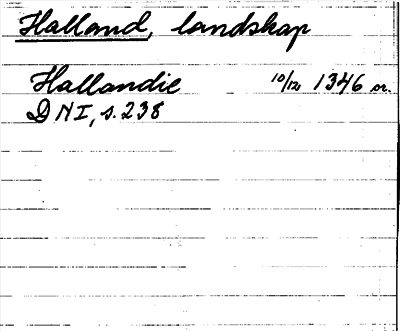 Halland, landskap
Hallandie 10/12 1346 or.
DN I, s. 238